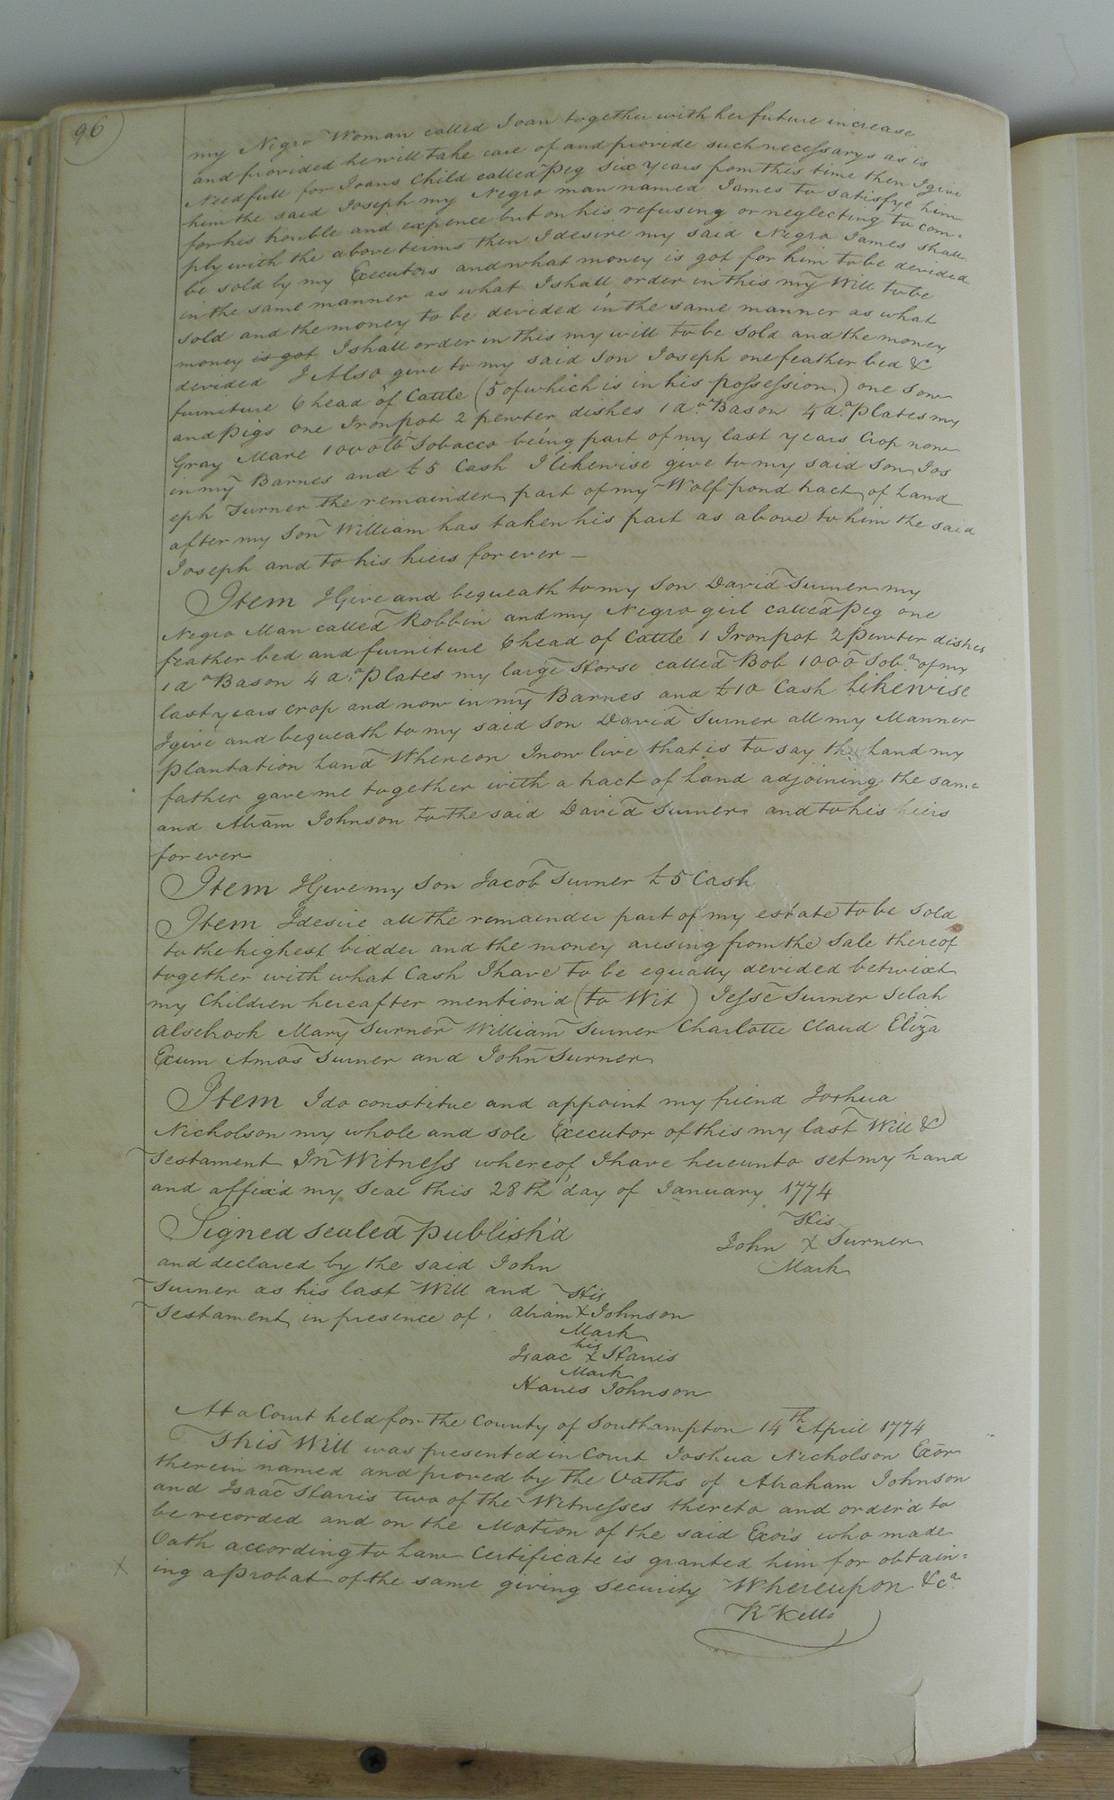 96
my Negro Woman called Joan together with her future increase
and provided he will take care of and provide such necessarys as is
Needfull for Joans Child called Peg six years from this time then I give
him the said Joseph my Negro man named James to satisfye him
for his trouble and expence but on his refusing or neglecting to com-
ply with the above terms then I desire my said Negro James shall
be sold by my Executors and what money is got for him to be devided
in the same manner as what I shall order in this my Will to be
sold and the money to be devided in the same manner as what
money is got I shall order in this my will to be sold and the money
devided I Also give to my said Son Joseph one feather bed &
furniture 6 head of Cattle (5 of which is in his possession) one Sow
and Pigs one Iron pot 2 pewter dishes 1 do. Bason 4 do. Plates my
Gray Mare 1000 lb Tobacco being part of my last years Crop now
in my Barnes and £5 Cash I likewise give to my said Son Jos
eph Turner the remainder part of my Wolf pond tract of Land
after my Son William has taken his part as above to him the said
Joseph and to his heirs for ever —
Item I Give and bequeath to my Son David Turner my
Negro Man called Robbin and my Negro girl called Peg one
feather bed and furniture 6 head of Cattle 1 Iron pot 2 Pewter dishes
1 do Bason 4 do. Plates my large Horse called Bob 1000 Tob.o of my
last years crop and now in my Barnes and £10 Cash Likewise
I give and bequeath to my said Son David Turner all my Manner
plantation Land Whereon I now live that is to say the Land my
father gave me together with a tract of Land adjoining the same
and Abram Johnson to the said David Turner and to his heirs
for ever
Item I Give my Son Jacob Turner £5 Cash
Item I desire all the remainder part of my estate to be sold
to the highest bidder and the money arising from the Sale thereof
together with what Cash I have to be equally devided betwixt
my Children hereafter mention'd (to Wit) Jesse Turner Selah
Alsebrook Mary Turner William Turner Charlotte Claud Eliza
Exum Amos Turner and John Turner
Item I do constitue and appoint my friend Joshua
Nicholson my whole and sole Executor of this my last Will &
Testament In Witness whereof I have hereunto set my hand
and affix'd my Seal this 28th day of January 1774
Signed sealed publish'd
and declared by the said John
Turner as his last Will and
Testament in presence of
His
John X Turner
Mark
His
Abram X Johnson
Mark
his
Isaac X Harris
Mark
Hanes Johnson
At a Court held for the County of Southampton 14th April 1774
This Will was presented in Court Joshua Nicholson Exor
therein named and proved by the Oaths of Abraham Johnson
and Isaac Harris two of the Witnesses thereto and order'd to
be recorded and on the Motion of the said Exors who made
Oath according to Law Certificate is granted him for obtain=
X
ing a probat of the same giving security Whereupon &ca
R Kello